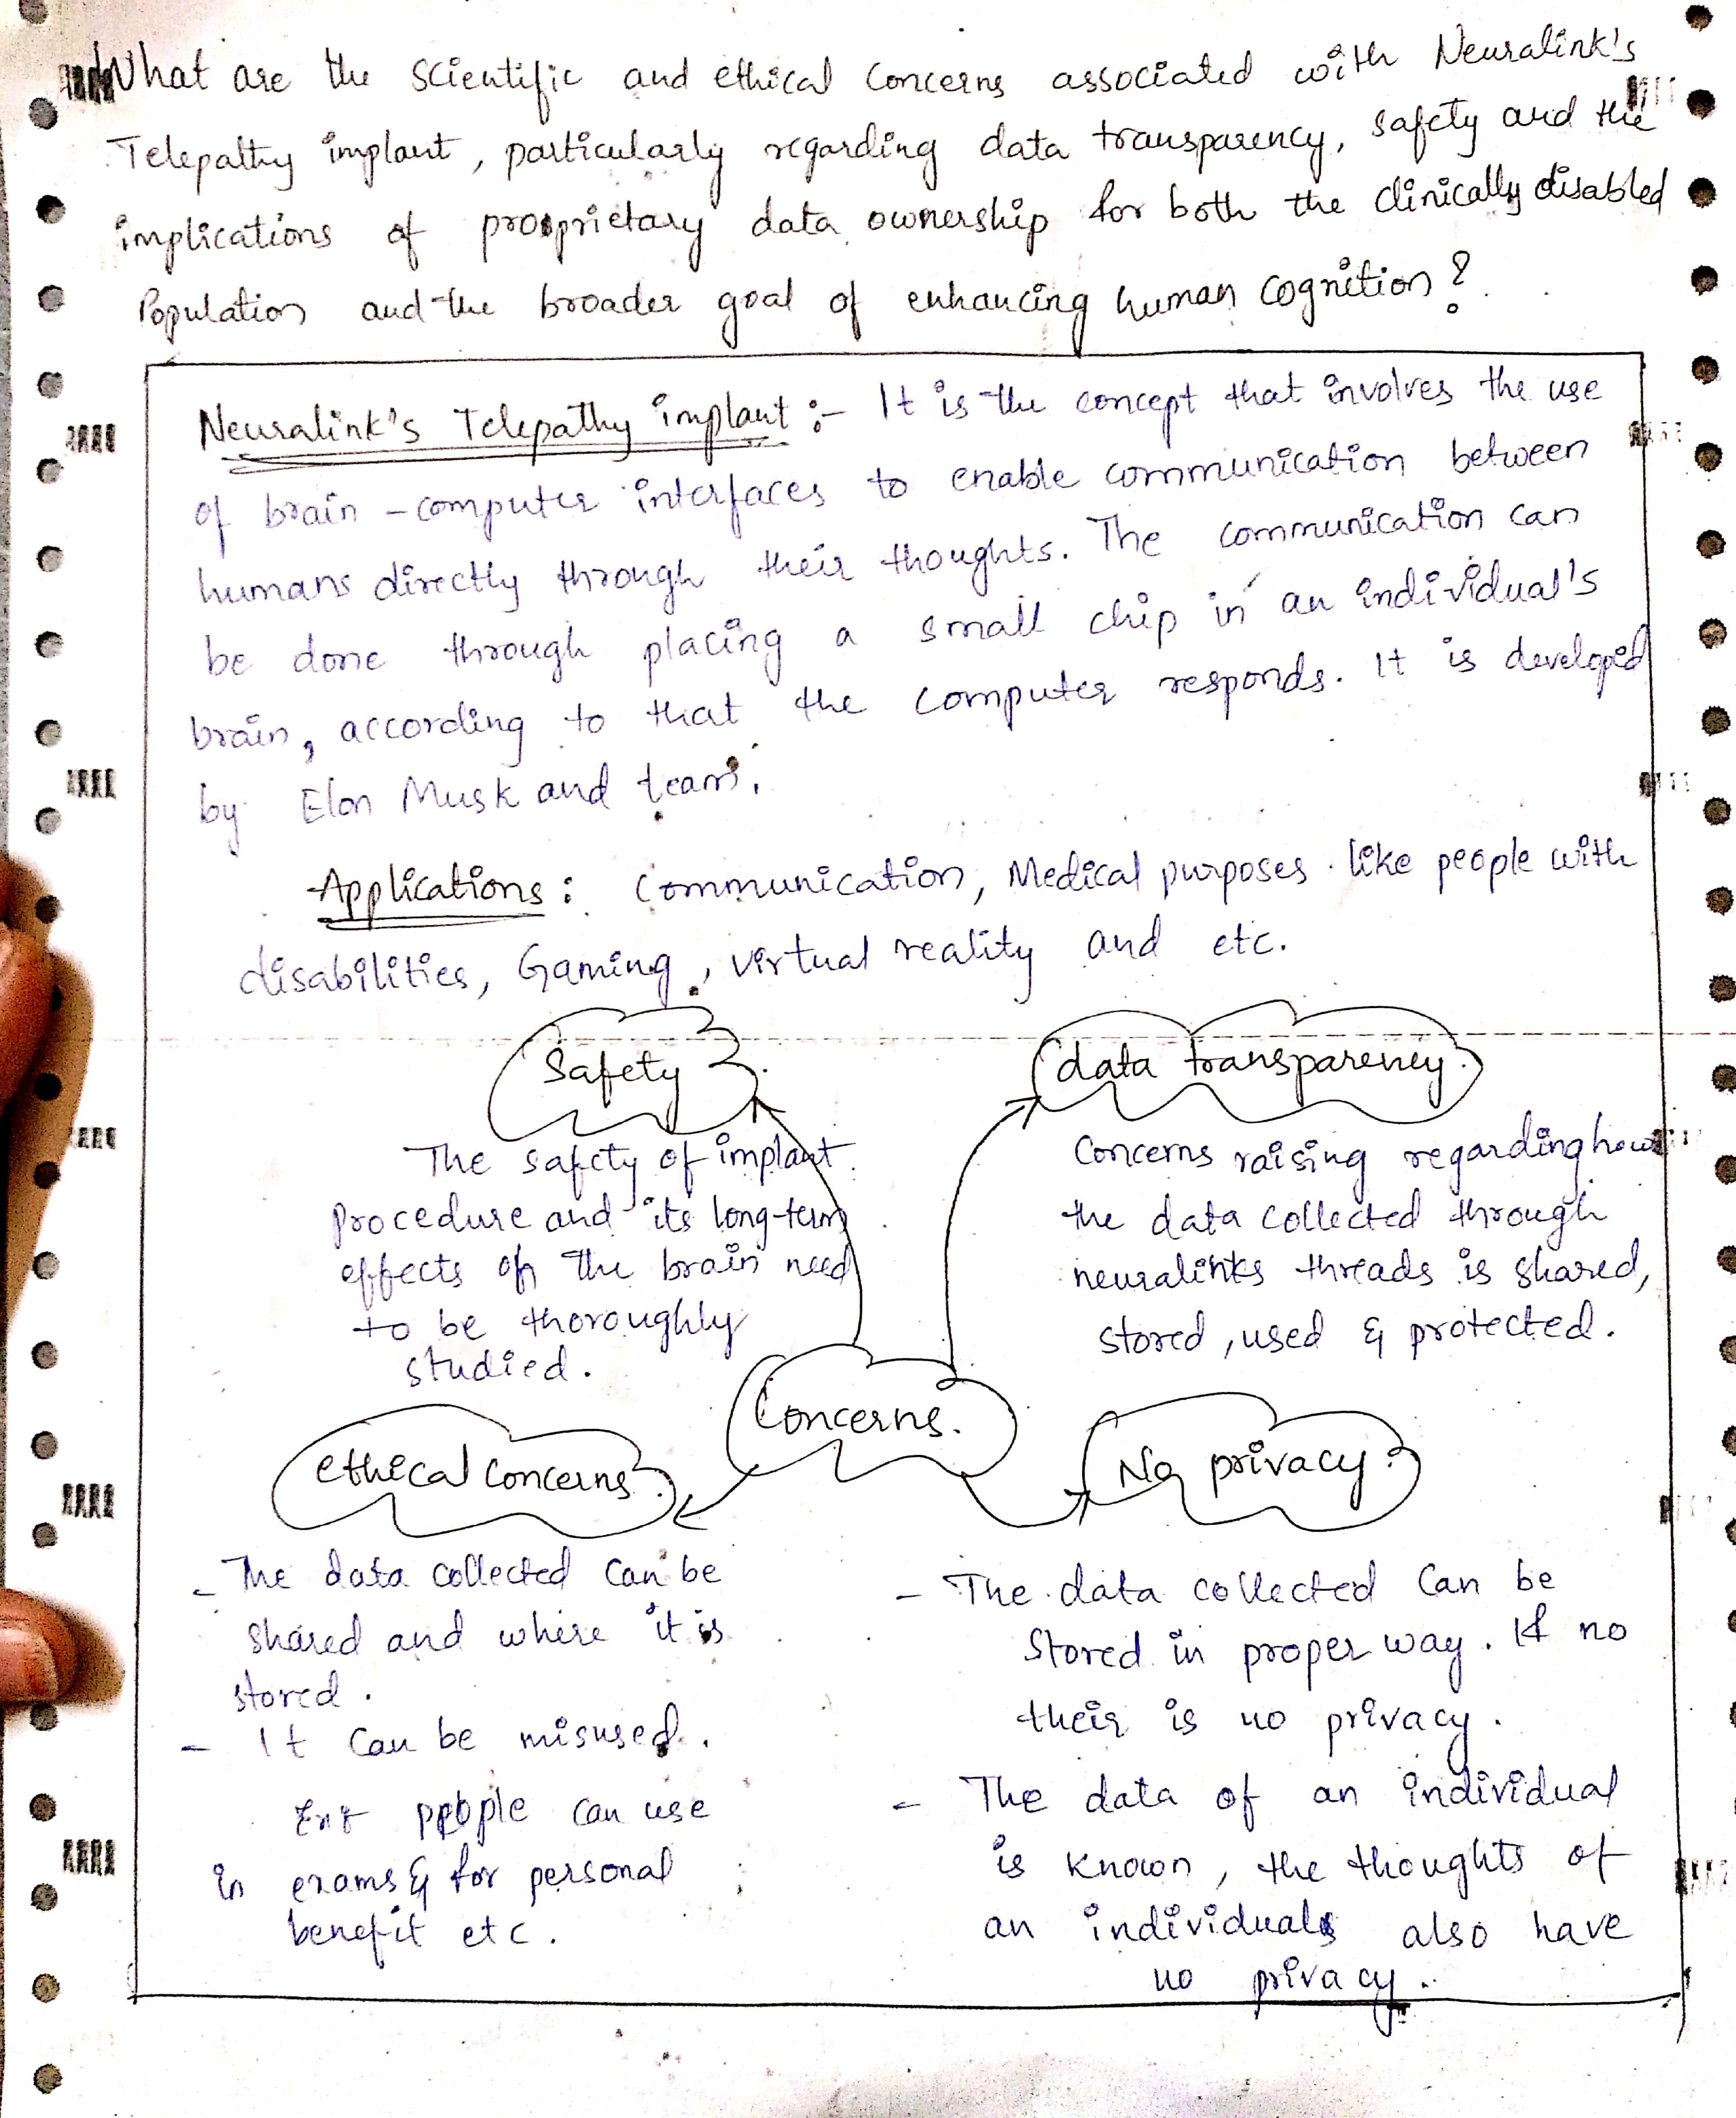 What are the scientific and ethical concerns associated with Neuralink's
Telepathy implant, particularly regarding data transparency, safety and the
implications of proprietary data ownership for both the clinically disabled
Population and the broader goal of enhancing human cognition?
Neuralink's Telepathy implant :- It is the concept that involves the use
of brain-computer interfaces to enable communication between
humans directly through their thoughts. The communication can
be done through placing a small chip in an individual's
brain, according to that the computer responds. It is developed
by Elon Musk and team.
Applications: Communication, Medical purposes like people with
disabilities, Gaming, virtual reality and etc.
Safety
The safety of implant
procedure and its long-term
effects on the brain need
to be thoroughly
studied.
data transparency.
Concerns raising regarding how
the data collected through
neuralinks threads is shared,
stored, used & protected.
Concerns.
ethical concerns.
- The data collected can be
shared and where it is
stored.
- It can be misused.
people can use
in exams & for personal
benefit etc.
No privacy.
- The data collected can be
stored in proper way. If no
their is no privacy.
- The data of an individual
is known, the thoughts of
an individuals also have
no privacy.